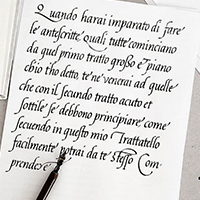 Quando harai imparato di fare
le antescritte quali tutte cominciano
da quel primo tratto grosso e piano
chio tho detto, te ne venrai ad quelle
che con il secundo tratto acuto et
sottile se debbono principiare come
secuendo in questo mio Trattatello
facilmente potrai da te stesso Com
prendere